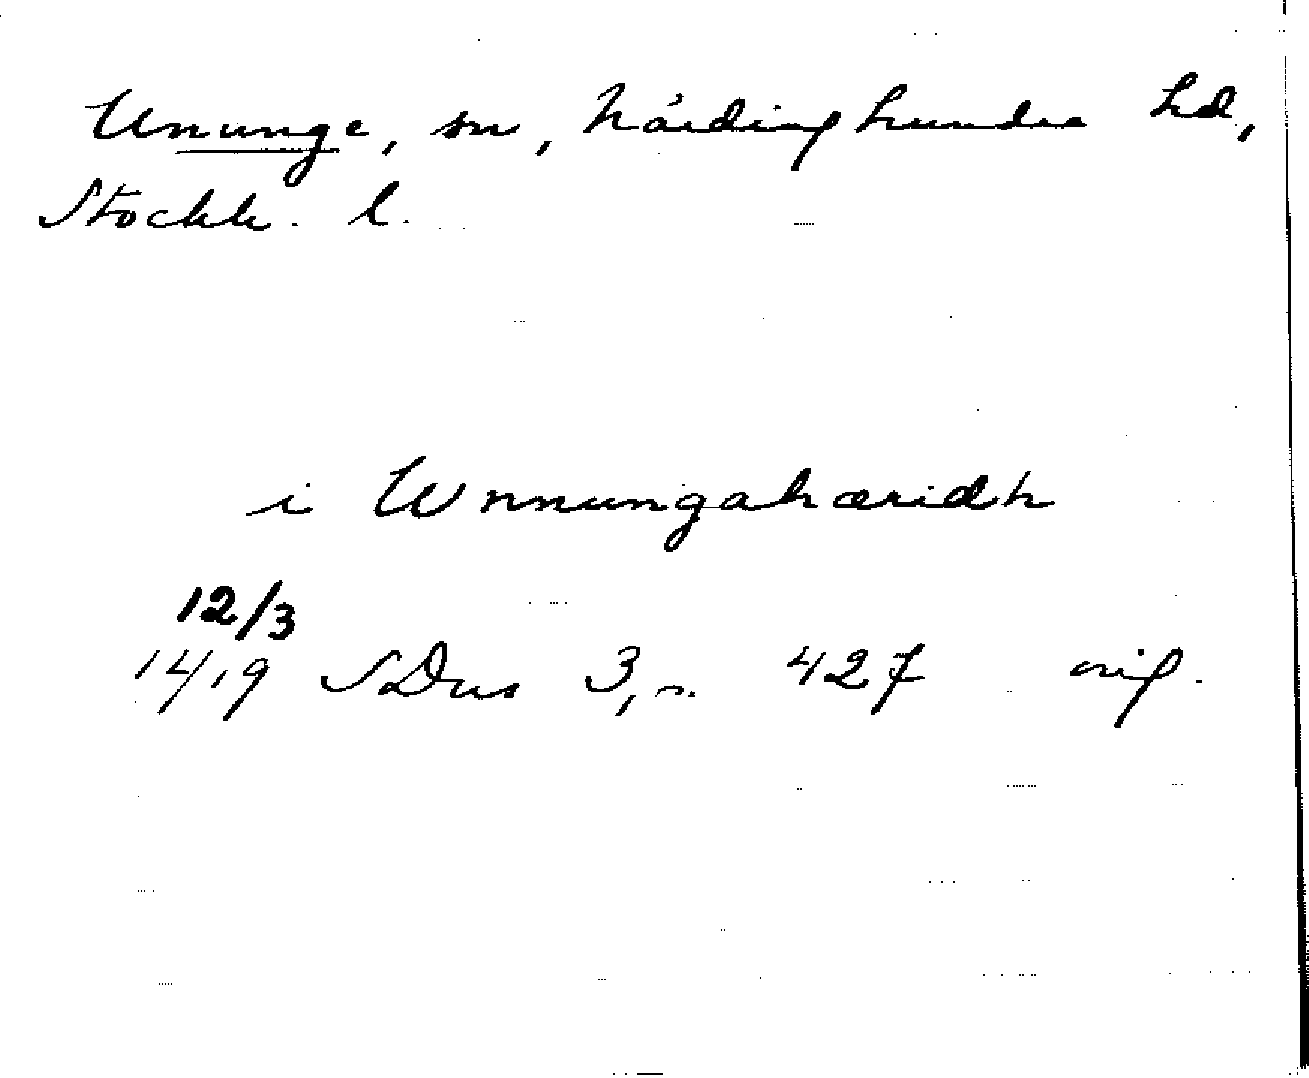 Ununge, sn, Närdinghundra hd,
Stockh. l.
i Wnnungahæridh
12/3
1419 SDns 3, s. 427 orig.